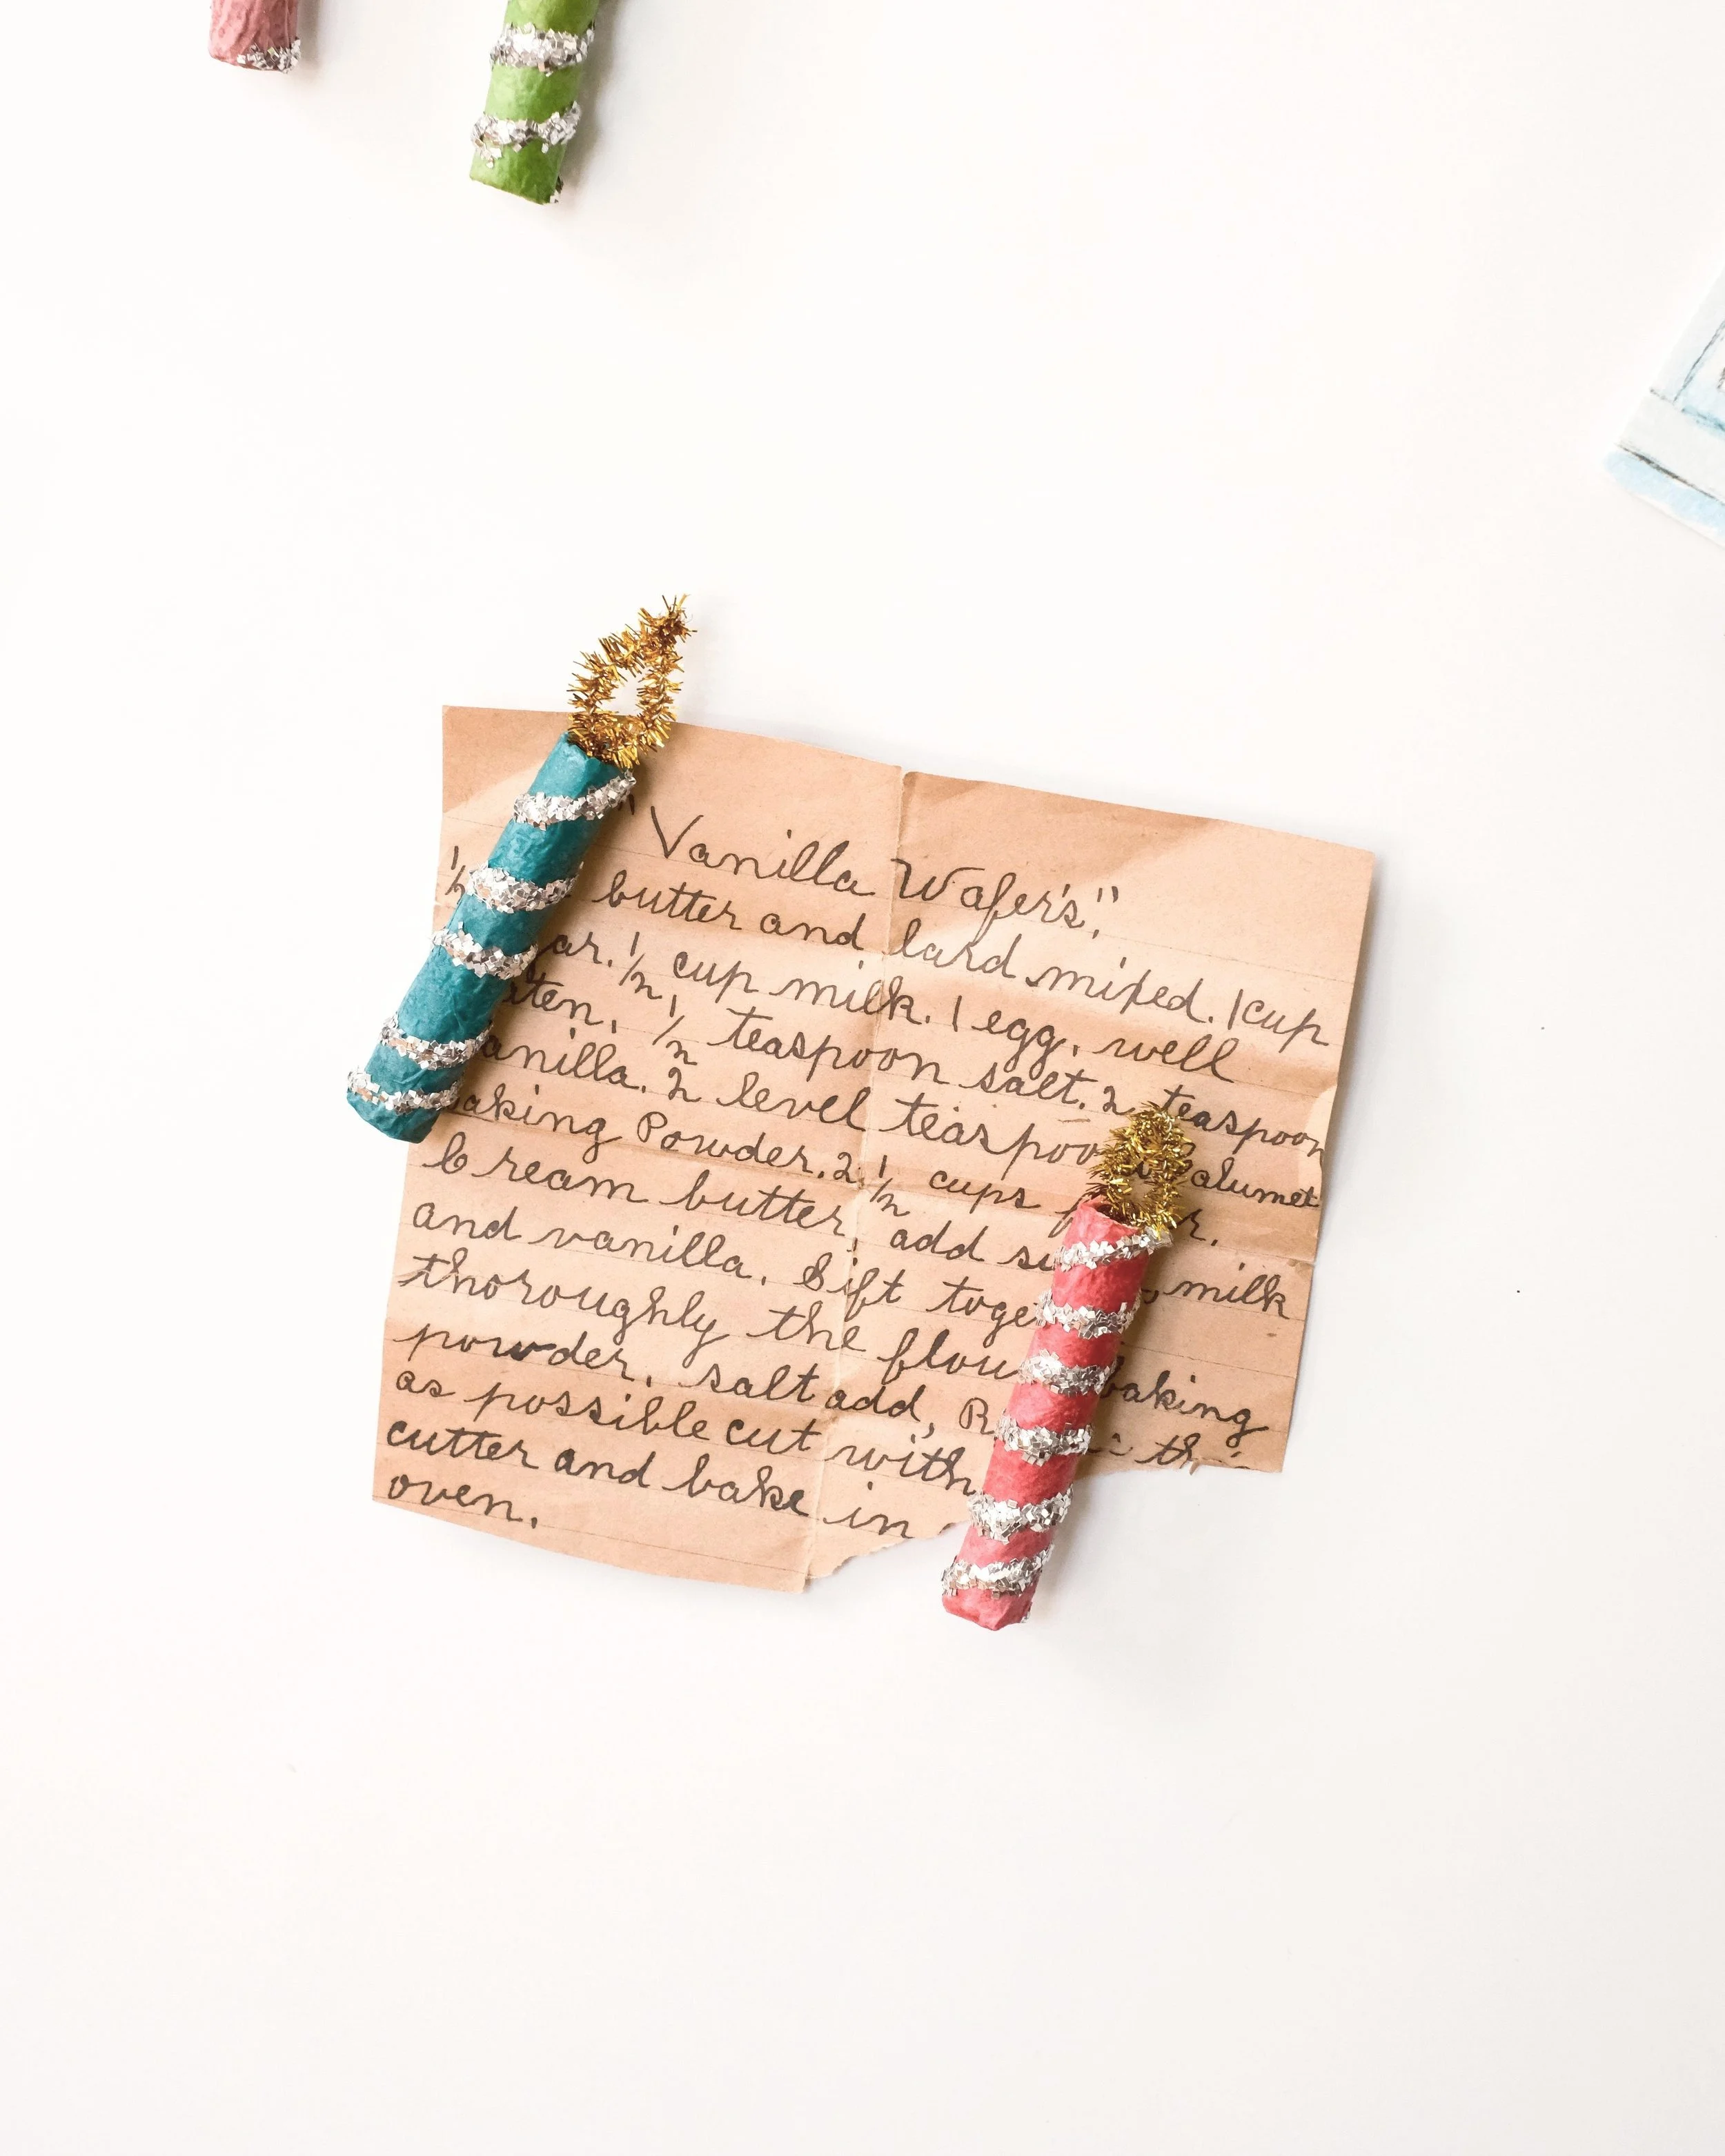 "Vanilla Wafer's."
1/2 butter and lard mixed. 1 cup
ar. 1/2 cup milk. 1 egg, well
aten. 1/2 teaspoon salt. 2 teaspoon
anilla. 2 level teaspoo alumet
aking Powder. 2 1/2 cups f r.
Cream butter, add su , milk
and vanilla. Sift toge
thoroughly the flou baking
powder, salt add, R th
as possible cut with
cutter and bake in
oven.